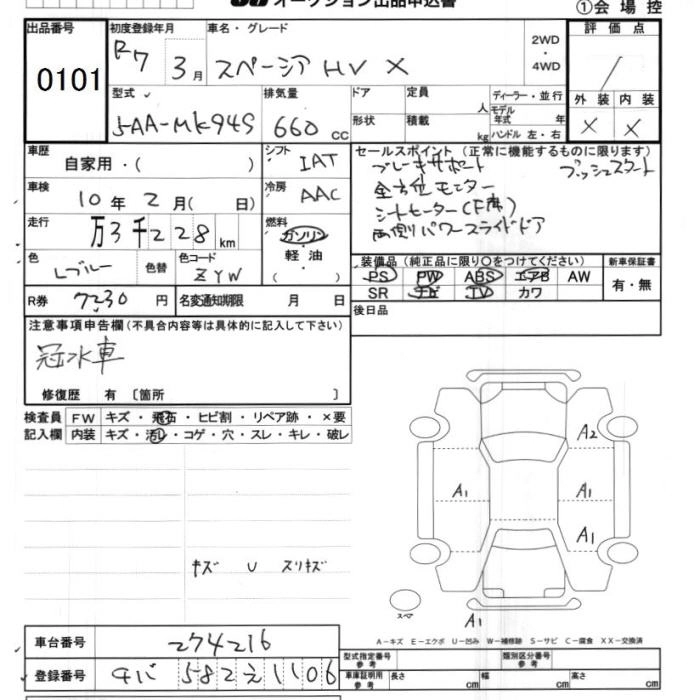 オークション出品申込書
①会場控
出品番号 初度登録年月 車名・グレード 2WD・4WD 評価点
0101 R7 3月 スペーシア HV X
型式 排気量 ドア 定員 人 ディーラー・並行 外装 内装
5AA-MK94S 660 CC 形状 積載 kg モデル年式 年式 ハンドル 左・右 X X
車歴 自家用・( ) シフト IAT セールスポイント(正常に機能するものに限ります)
ブレーキサポート プッシュスタート
車検 10年2月( 日) 冷房 AAC 全方位モニター
シートヒーター(F席)
走行 万3千228km 燃料 ガソリン 両側パワースライドドア
軽油
色 Lブルー 色替 色コード ZYW ( ) 装備品(純正品に限り○をつけてください) 新車保証書
PS PW ABS エアB AW 有・無
R券 7230円 名変通知期限 月 日 SR ナビ TV カワ
注意事項申告欄(不具合内容等は具体的に記入して下さい) 後日品
冠水車
修復歴 有 〔箇所 〕
検査員 FW キズ・飛石・ヒビ割・リペア跡・×要
記入欄 内装 キズ・汚れ・コゲ・穴・スレ・キレ・破レ
A2
A1 A1
A1
キズ U スリキズ
スペア
A1
A-キズ E-エクボ U-凹み W-補修跡 S-サビ C-腐食 XX-交換済
車台番号 274216
型式指定番号 参考 類別区分番号 参考
登録番号 582え1106
車庫証明用 参考 長さ cm 幅 cm 高さ cm